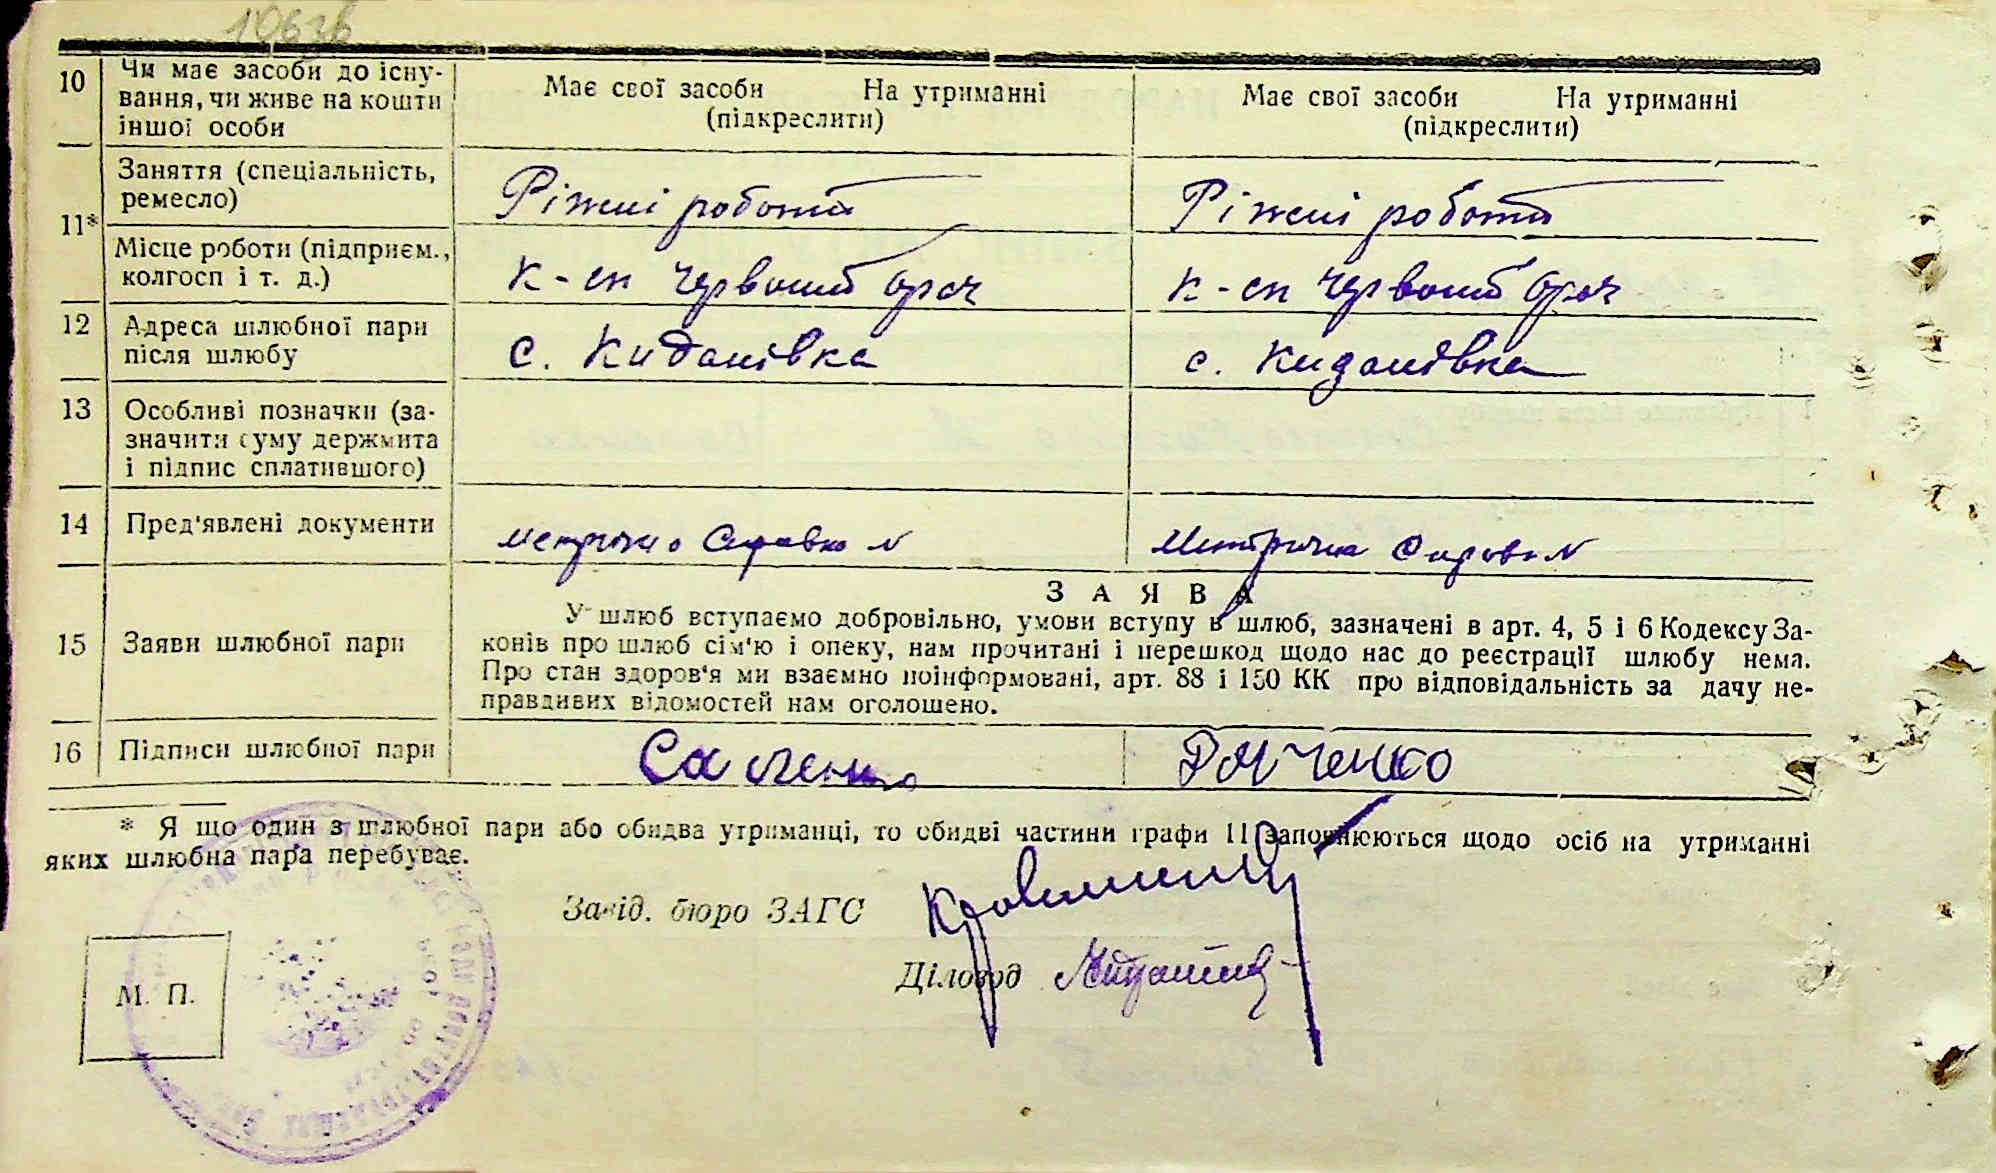 1063б
10 Чи має засоби до існу-
вання, чи живе на кошти
іншої особи
Має свої засоби На утриманні
(підкреслити)
Має свої засоби На утриманні
(підкреслити)
11* Заняття (спеціальність,
ремесло)
Ріжні роботи
Ріжні роботи
Місце роботи (підприєм.,
колгосп і т. д.)
к-сп Червоний орач
к-сп Червоний орач
12 Адреса шлюбної пари
після шлюбу
с. Киданівка
с. Киданівка
13 Особливі позначки (за-
значити суму держмита
і підпис сплатившого)
14 Пред'явлені документи
Метрична Справка №
Метрична Справка №
ЗАЯВА
15 Заяви шлюбної пари
У шлюб вступаємо добровільно, умови вступу в шлюб, зазначені в арт. 4, 5 і 6 Кодексу За-
конів про шлюб сім'ю і опеку, нам прочитані і перешкод щодо нас до реєстрації шлюбу нема.
Про стан здоров'я ми взаємно поінформовані, арт. 88 і 150 КК про відповідальність за дачу не-
правдивих відомостей нам оголошено.
16 Підписи шлюбної пари
* Я що один з шлюбної пари або обидва утриманці, то обидві частини графи 11 заповнюються щодо осіб на утриманні
яких шлюбна пара перебуває.
Завід. бюро ЗАГС
Діловод
М. П.